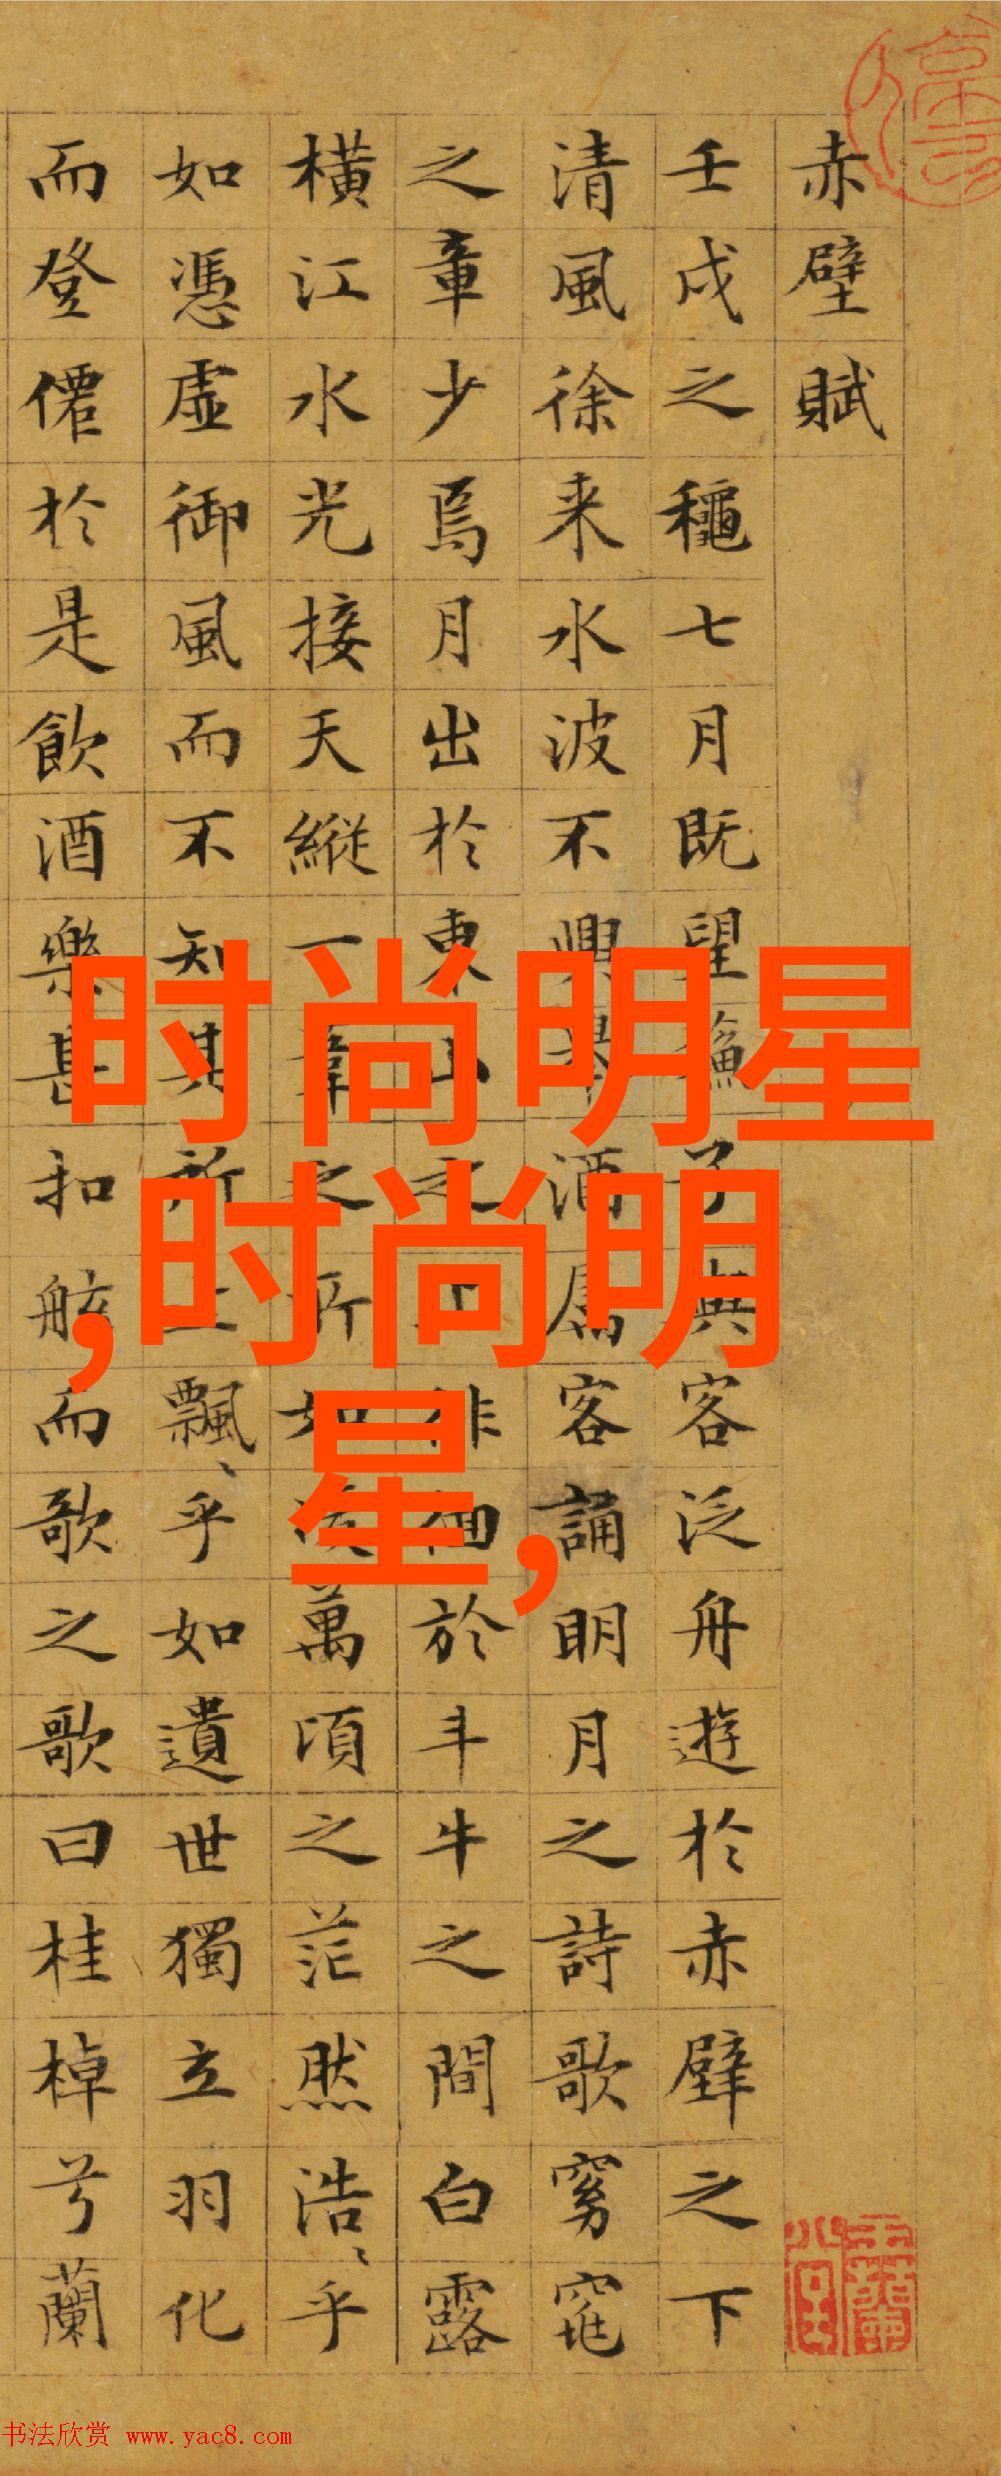 赤壁賦
壬戌之龝七月既望蘓子與客泛舟遊於赤壁之下
清風徐来水波不興舉酒屬客誦明月之詩歌窈窕
之章少焉月出於東山之上徘徊於斗牛之間白露
横江水光接天縱一葦之所如凌萬頃之茫然浩〻乎
如憑虚御風而不知其所止飄〻乎如遺世獨立羽化
而登僊於是飲酒樂甚扣舷而歌之歌曰桂棹兮蘭
时尚明星
,时尚明
星,
书法欣赏 www.yac8.com